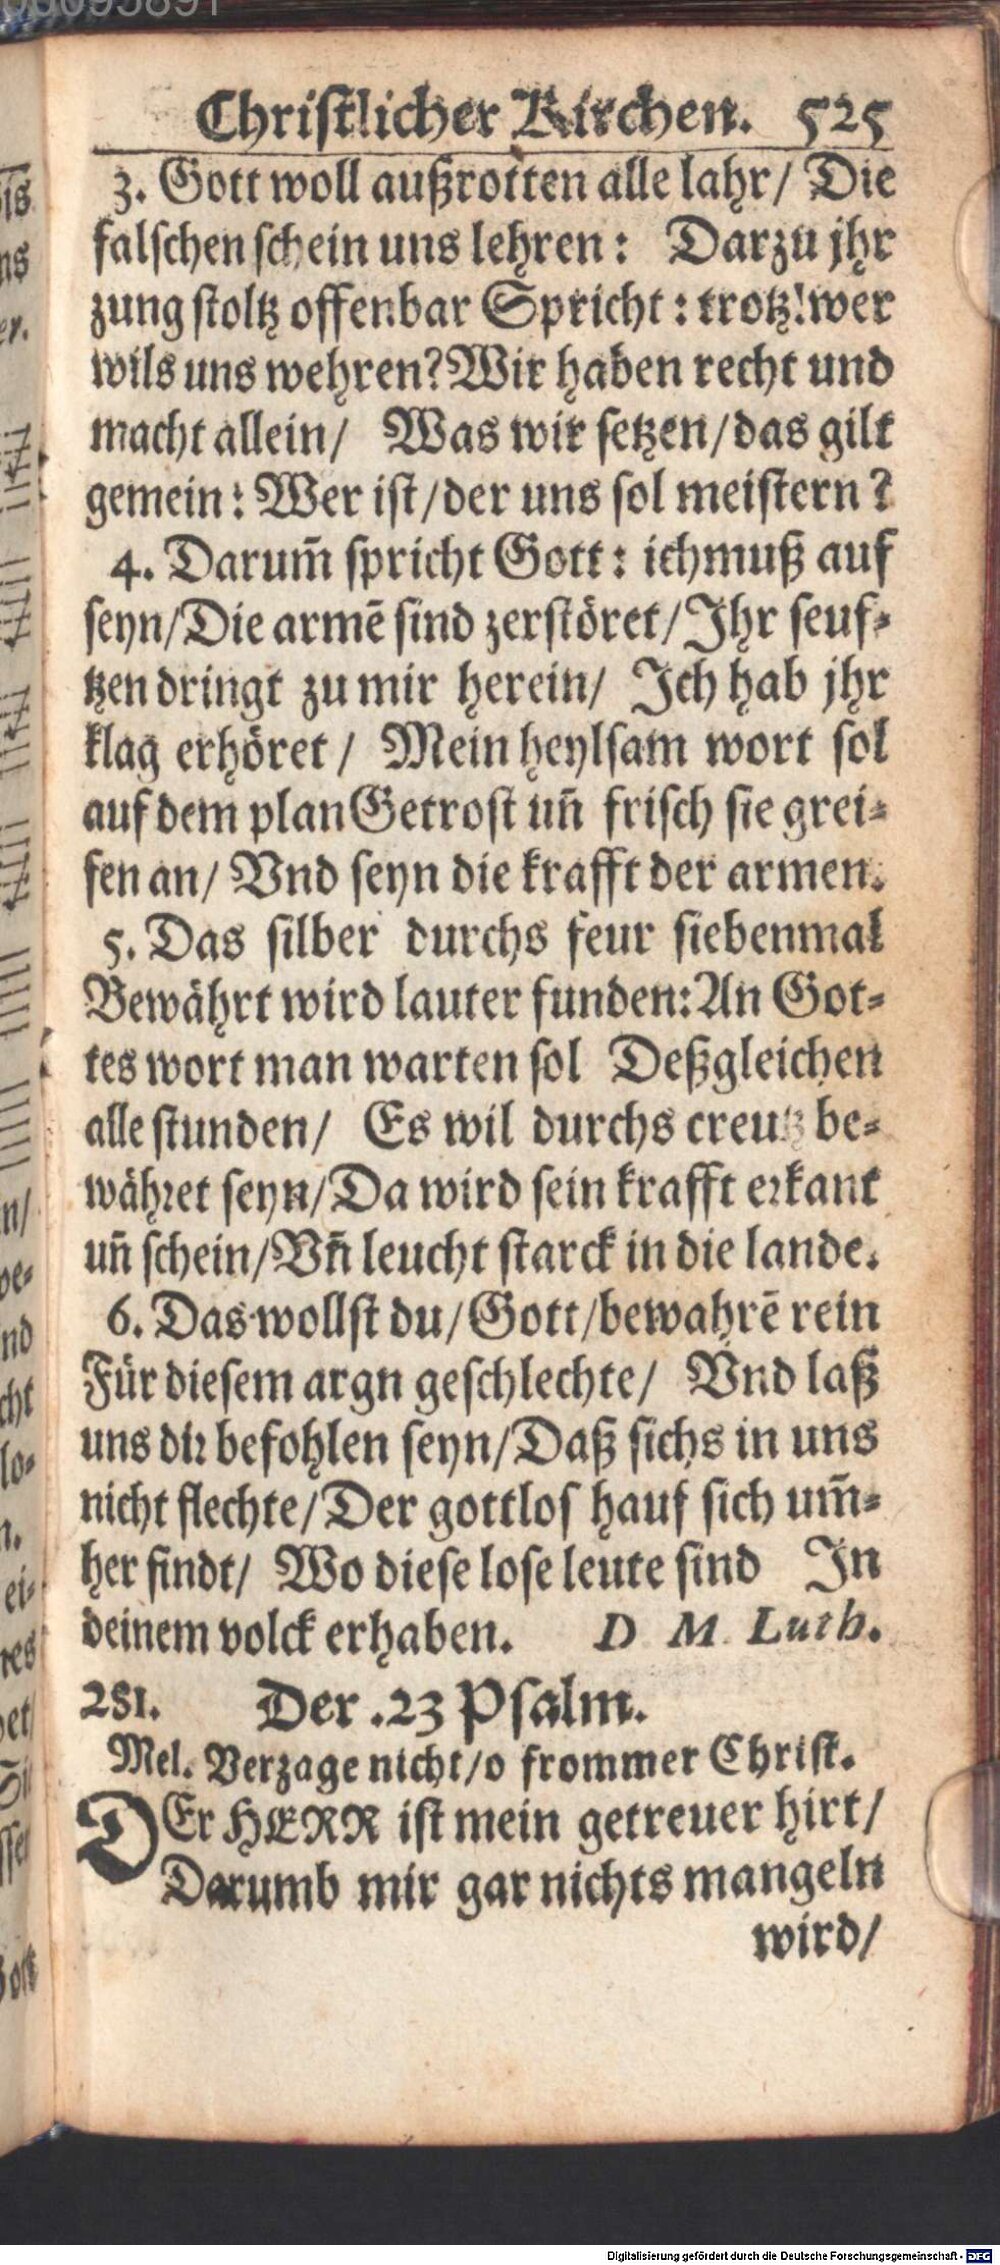 Christlicher Kirchen. 525
3. Gott woll außrotten alle lahr/ Die
falschen schein uns lehren: Darzu jhr
zung stoltz offenbar Spricht: trotz! wer
wils uns wehren? Wir haben recht und
macht allein/ Was wir setzen/ das gilt
gemein: Wer ist/ der uns sol meistern?
4. Darum̃ spricht Gott: ich muß auf
seyn/ Die armẽ sind zerstöret/ Ihr seuf-
tzen dringt zu mir herein/ Ich hab jhr
klag erhöret/ Mein heylsam wort sol
auf dem plan Getrost uñ frisch sie grei-
fen an/ Vnd seyn die krafft der armen.
5. Das silber durchs feur siebenmal
Bewährt wird lauter funden: An Got-
tes wort man warten sol Deßgleichen
alle stunden/ Es wil durchs creutz be-
währet seyn/ Da wird sein krafft erkant
uñ schein/ Vñ leucht starck in die lande.
6. Das wollst du/ Gott/ bewahrẽ rein
Für diesem argn geschlechte/ Vnd laß
uns dir befohlen seyn/ Daß sichs in uns
nicht flechte/ Der gottlos hauf sich um̃-
her findt/ Wo diese lose leute sind In
deinem volck erhaben. D M. Luth.
281. Der .23 Psalm.
Mel. Verzage nicht/ o frommer Christ.
DEr HERR ist mein getreuer hirt/
Darumb mir gar nichts mangeln
wird/
Digitalisierung gefördert durch die Deutsche Forschungsgemeinschaft - DFG